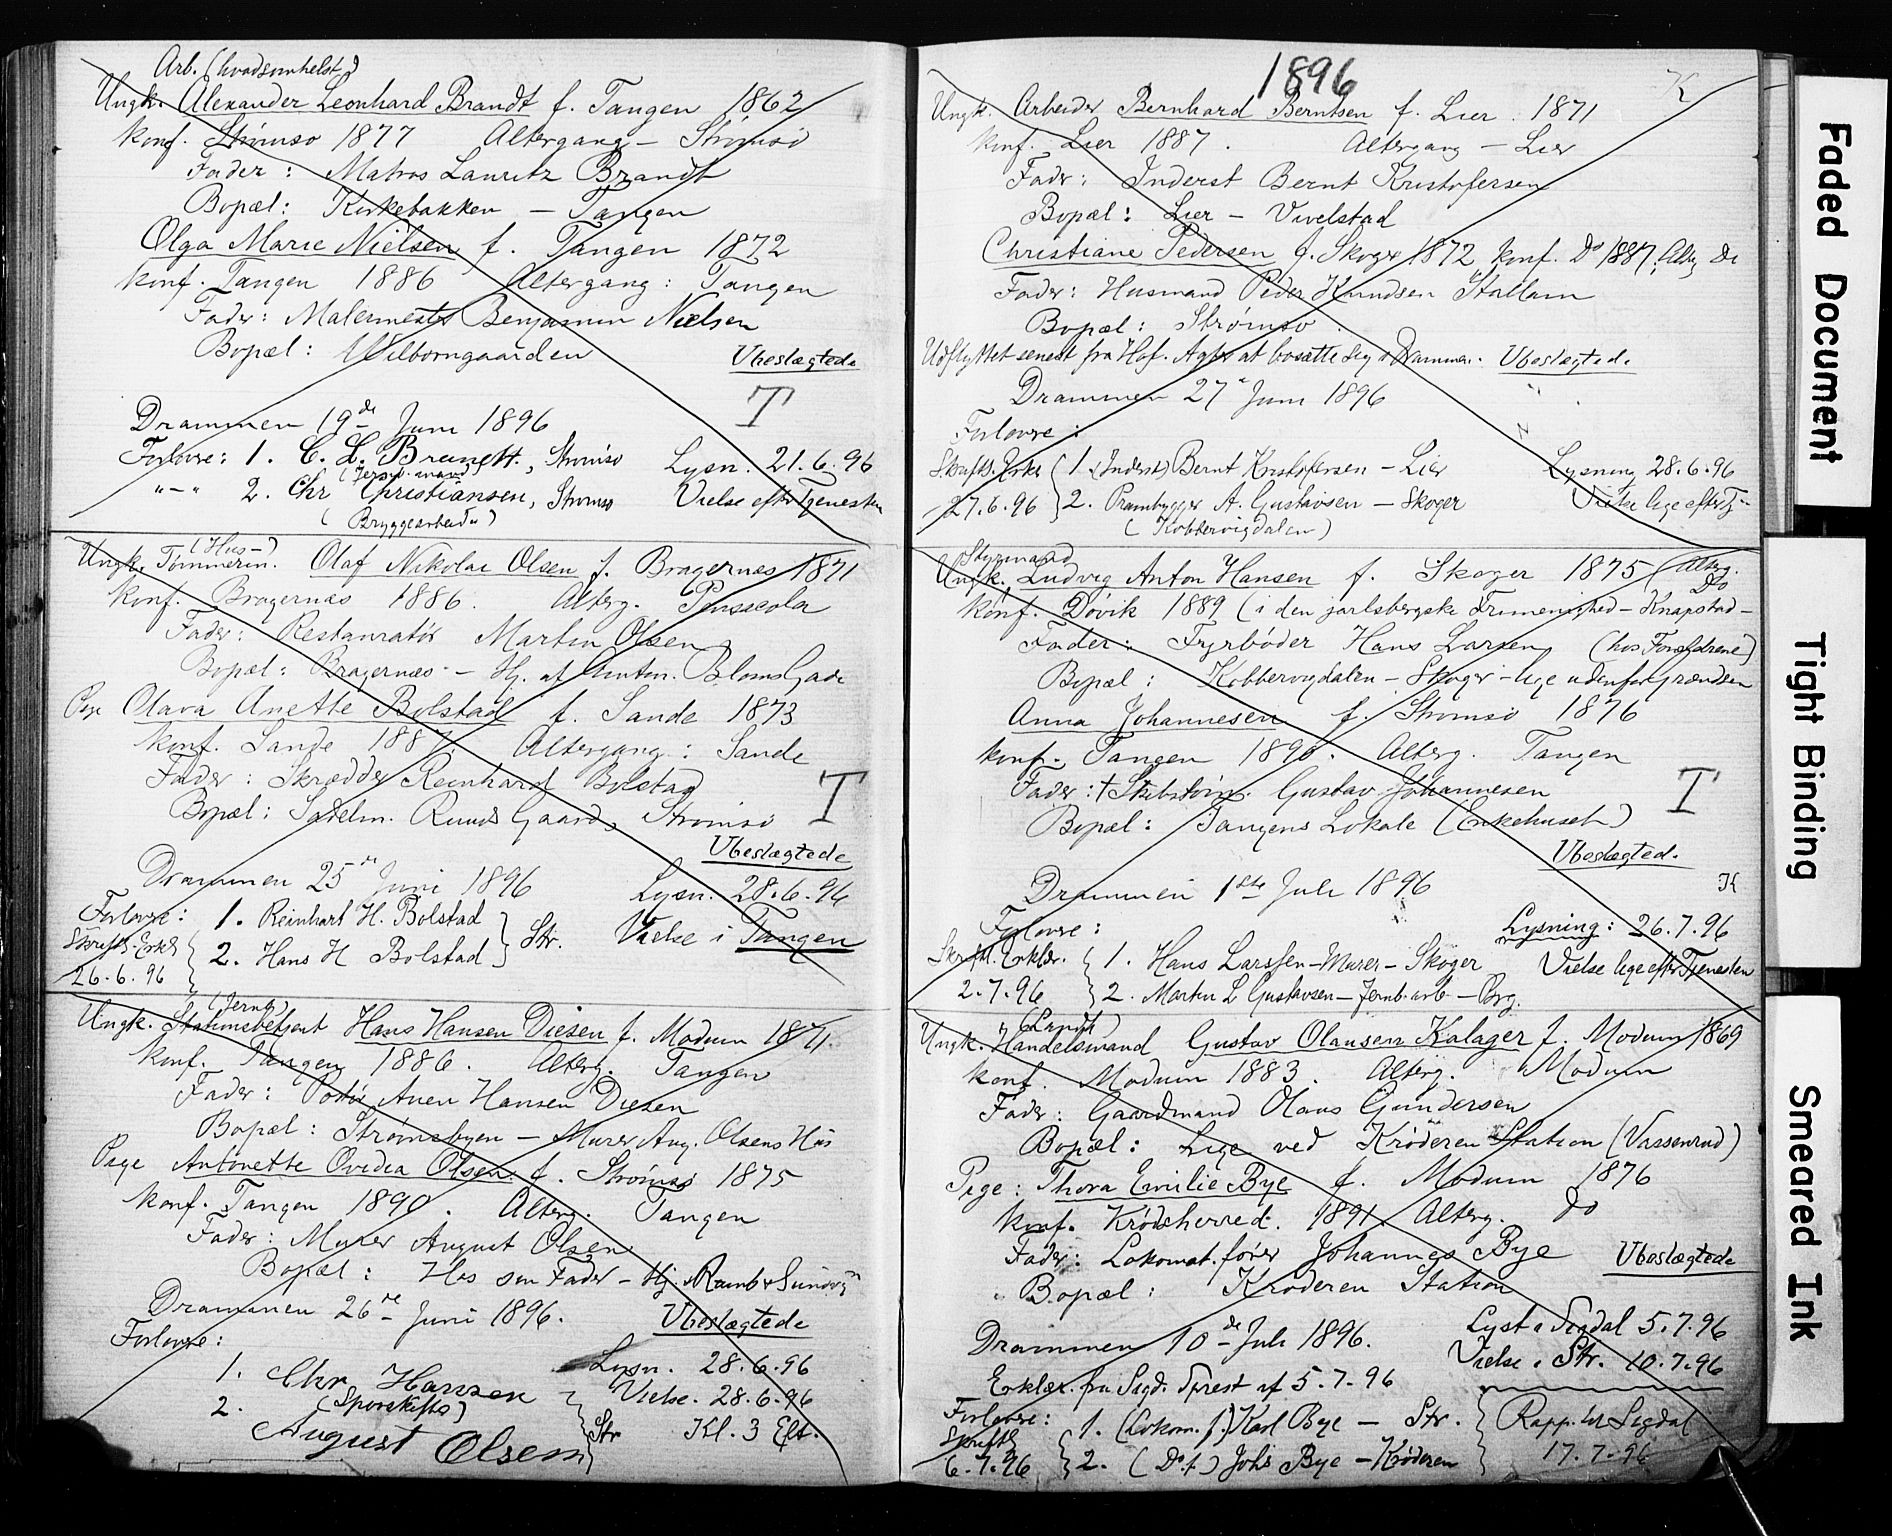 Arb. (hvadsomhelst)
Ungk. Alexander Leonhard Brandt f. Tangen 1862
konf. Strømsø 1877 Altergang – Strømsø
Fader: Matros Lauritz Brandt
Bopæl: Kirkebakken – Tangen
Olga Marie Nielsen f. Tangen 1872
konf. Tangen 1886 Altergang: Tangen
Fader: Malermester Benjamin Nielsen
Bopæl: Wilborngaarden Ubeslægtede
T
Drammen 19de Juni 1896
Forlovre: 1. C. L. Brandt, Strømsø Lysn. 21.6.96
"–" 2. Chr Christiansen, Strømsø Vielse efter Tjenesten
(Bryggearbeider)
(Hus–)
Ungk. Tømmerm. Olaf Nikolai Olsen f. Bragernæs 1871
konf. Bragernæs 1886. Alterg.
Fader: Restauratør Martin Olsen
Bopæl: Bragernæs – Hj. af Blomsgade
Pige Olava Anette Bolstad f. Sande 1873
konf. Sande 1887. Altergang: Sande
Fader: Skrædder Reinhard Bolstad
Bopæl: Sadelm. Ruuds Gaard, Strømsø
T
Ubeslægtede
Drammen 25de Juni 1896 Lysn. 28.6.96
Forlovre: 1. Reinhart H. Bolstad
Skriftl. Erkl. 2. Hans H Bolstad Str. Vielse i Tangen
26.6.96
(Jernb.)
Ungk. Stationsbetjent Hans Hansen Diesen f. Modum 1871.
konf. Tangen 1886. Alterg. Tangen
Fader: Hansen Diesen
Bopæl: Strømsbyen – Murer Aug. Olsens Hus
Pige Antonette Ovidia Olsen f. Strømsø 1875
konf. Tangen 1890. Alterg. Tangen
Fader: Murer August Olsen
Bopæl: Hos sin Fader – Hj.
Drammen 26de Juni 1896. Ubeslægtede
Forlovre:
1. Chr Hansen Lysn. 28.6.96
(Sporskifter) Vielse. 28.6.96
2. August Olsen Str Kl. 3 Eft.
1896
K
Ungk. Arbeider Bernhard Berntsen f. Lier. 1871
konf. Lier 1887. Altergang – Lier
Fader: Inderst Bernt Kristofersen
Bopæl: Lier – Vivelstad
Christiane Pedersen f. Skoger 1872 konf. Do 1887. Altg Do
Fader: Husmand Peder Knudsen Stallam
Bopæl: Strømsø.
Udflyttet senest fra Hof. Agter at bosætte sig i Drammen. Ubeslægtede.
Drammen 27de Juni 1896
Forlovre:
Skriftl. Erkl. 1. (Inderst) Bernt Kristofersen – Lier Lysning 28.6.96
27.6.96 2. Prambygger A. Gustavsen – Skoger Vielse lige efter Tj–
(Kobbervigdalen)
Styrmand
Ungk. Ludvig Anton Hansen f. Skoger 1875 (Alterg. Do
konf. Døvik 1889 (i den jarlsbergske Frimenighed – Knapstad –
Fader: Fyrbøder Hans Larsen (hos Forældrene)
Bopæl: Kobbervigdalen – Skoger – lige udenfor Grændsen
Anna Johannesen f. Strømsø 1876
konf. Tangen 1890. Alterg. Tangen
Fader: † Skibstøm. Gustav Johannesen
Bopæl: Tangens Lokale (Enkehuset) T
Ubeslægted.
Drammen 1ste Juli 1896 K
Forlovre: Lysning: 26.7.96
Skriftl. Erklær. 1. Hans Larssen – Murer – Skoger Vielse lige efter Tjenesten
2.7.96 2. Martin L Gustavsen – Jernb.arb – Brg.
(Landh)
Ungk. Handelsmand Gustav Olausen Kalager f. Modum 1869
konf. Modum 1883. Alterg. Modum
Fader: Gaardmand Olaus Gundersen
Bopæl: Lige ved Krøderen Station (Vassenrud)
Pige: Thora Emilie Bye f. Modum 1876
konf. Krødsherred. 1891. Alterg. do
Fader: Lokomot.fører Johannes Bye Ubeslægtede
Bopæl: Krøderen Station
Drammen 10de Juli 1896. Lyst i Sigdal 5.7.96
Vielse i Str. 10.7.96
Erklær. fra Sigd. Sprest af 5.7.96
Forlovre: 1. (Lokom.f.) Karl Bye – Str. Rapp. til Sigdal
Skriftl. 6.7.96 2. (Do f.) Johs Bye – Krøderen 17.7.96
Faded Document
Tight Binding
Smeared Ink